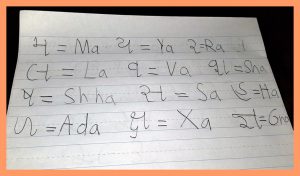 મ = Ma ય = Ya ર=Ra
લ = La વ = Va શ = Sha
ષ = Shha સ = Sa હ=Ha
ળ = Ada ક્ષ = Xa જ્ઞ=Gna